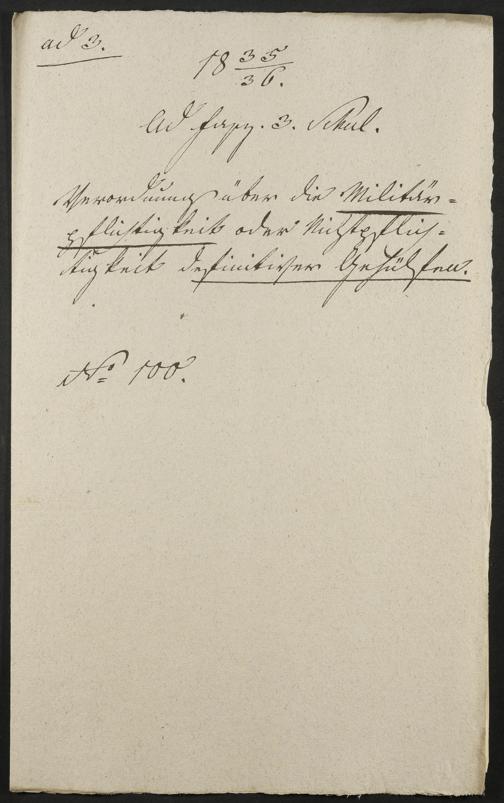 ad 3.
18 35/36.
Ad fasz. 3. Schul.
Verordnung über die Militär=
pflichtigkeit oder Nichtpflich=
tigkeit definitiver Gehülfen.
No 100.